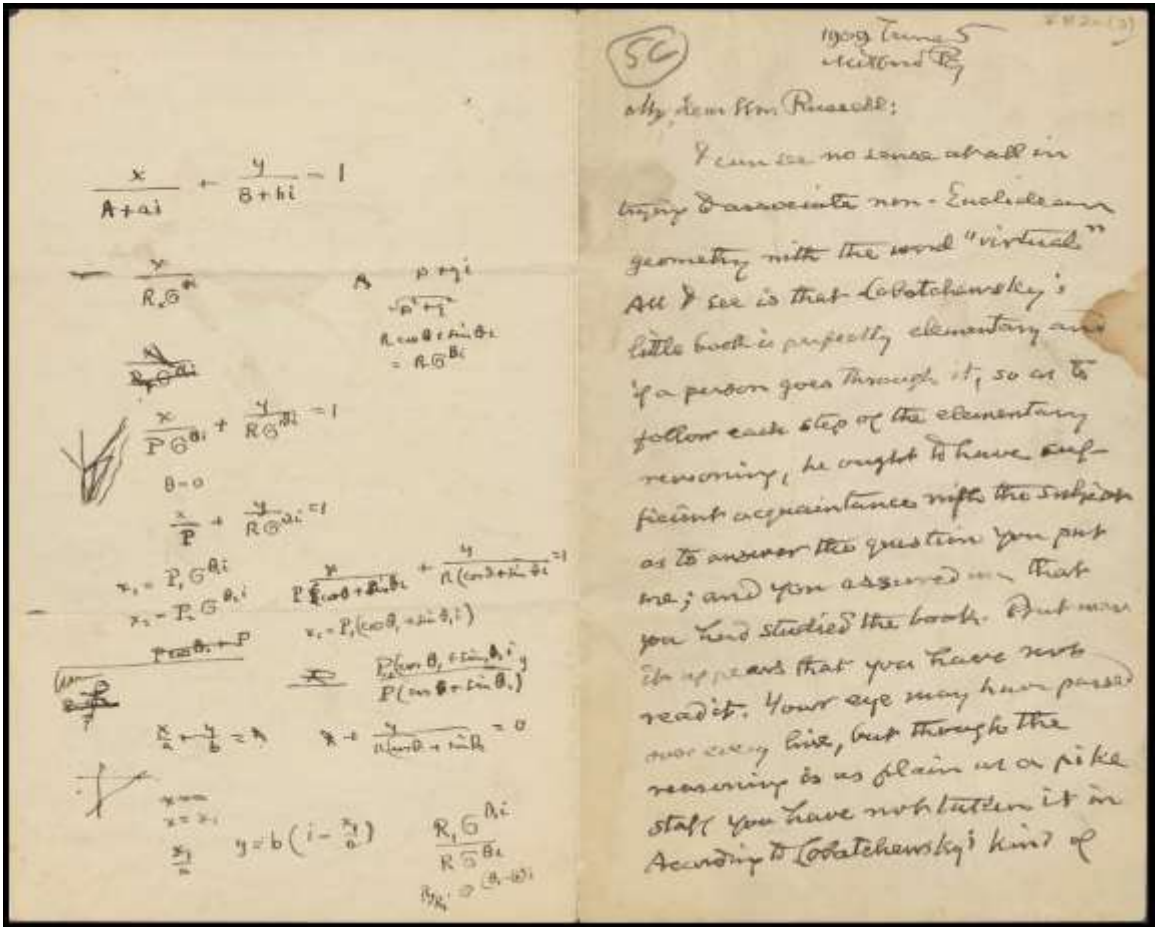 x/(A+ai) + y/(B+bi) = 1
p+qi
= R G^θi
x/(P G^θi) + y/(R G^θi) = 1
θ=0
x/P + y/(R G^θi) = 1
x₁ = P₁ G^θ₁i
x₂ = P₂ G^θ₂i
x₁ = P₁(cos θ₁ + sin θ₁ i)
y = b(i - x₁/a)
R₁ G^θ₁i
R G^θi
56
1909 June 5
Milford Pa
My dear Mr. Russell:
I can see no sense at all in
trying to associate non-Euclidean
geometry with the word "virtual"
All I see is that Lobatchewsky's
little book is perfectly elementary and
if a person goes through it, so as to
follow each step of the elementary
reasoning, he ought to have suf-
ficient acquaintance with the subject
as to answer the question you put
me; and you assured me that
you had studied the book. But now
it appears that you have not
read it. Your eye may have passed
over every line, but though the
reasoning is as plain as a pike
staff you have not taken it in
According to Lobatchewsky's kind of